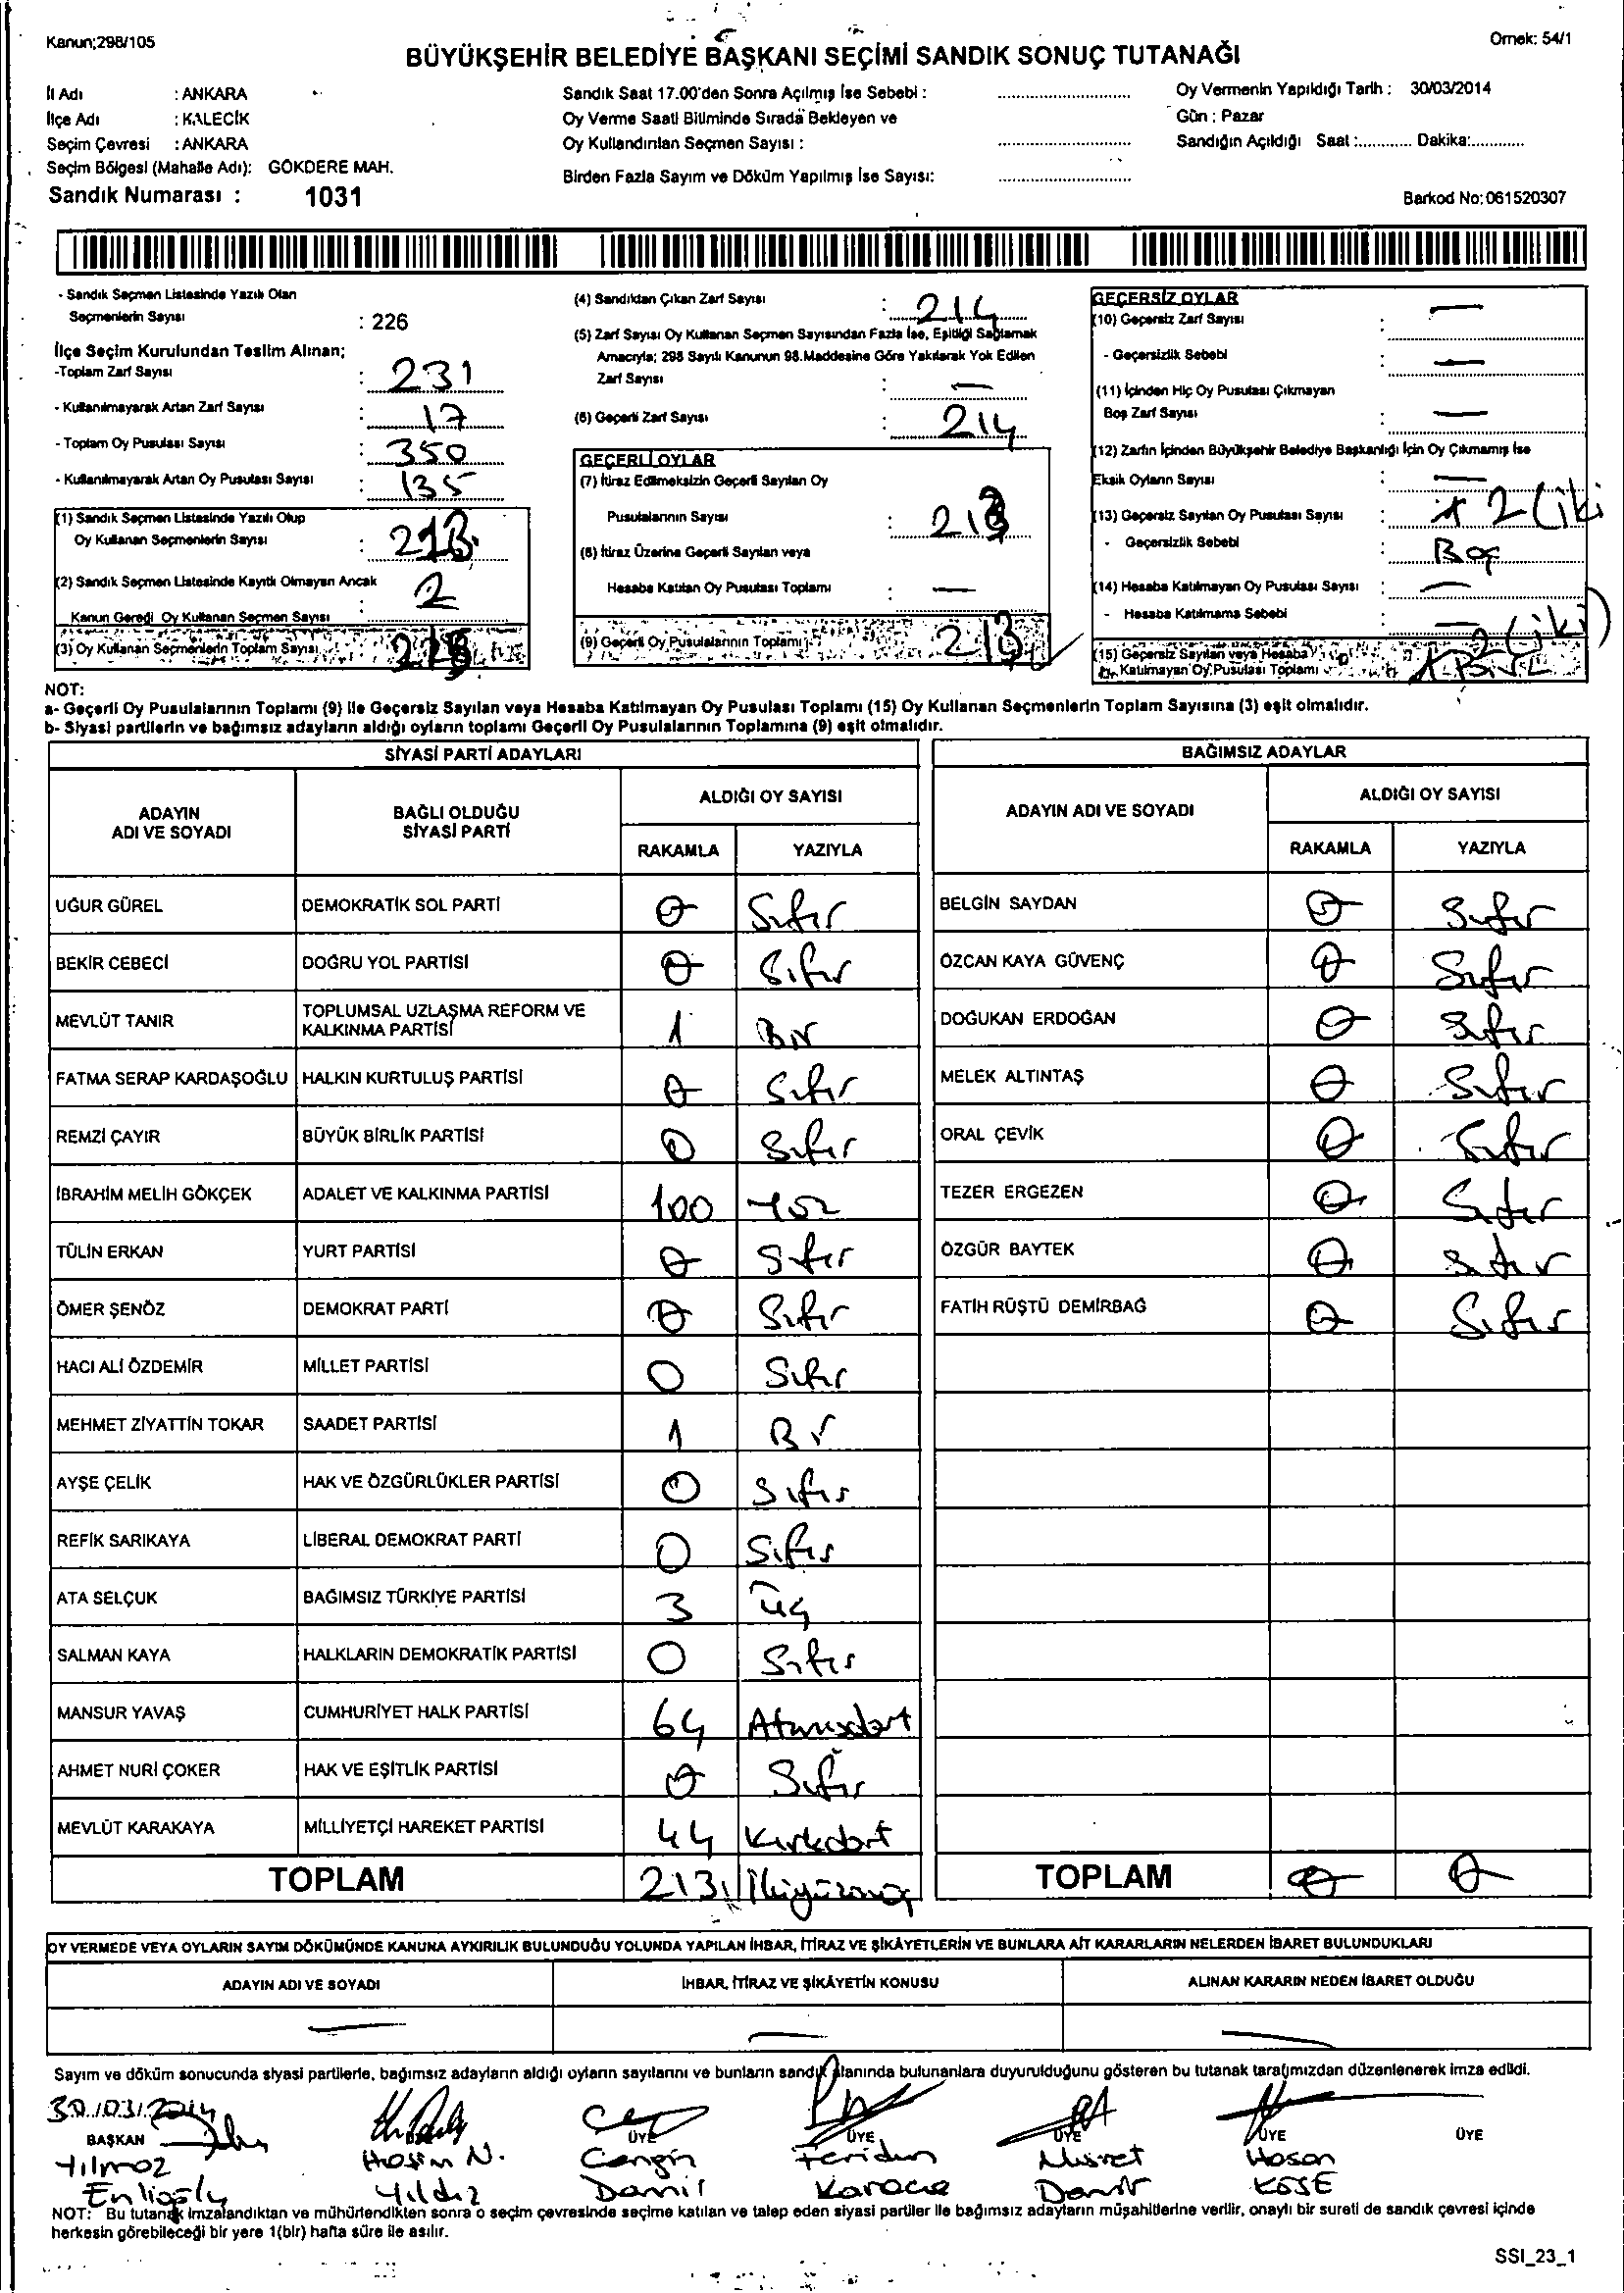 Kanun;298/105
Örnek: 54/1
BÜYÜKŞEHİR BELEDİYE BAŞKANI SEÇİMİ SANDIK SONUÇ TUTANAĞI
İl Adı : ANKARA
İlçe Adı : KALECİK
Seçim Çevresi : ANKARA
Seçim Bölgesi (Mahalle Adı): GÖKDERE MAH.
Sandık Numarası : 1031
Sandık Saat 17.00'den Sonra Açılmış İse Sebebi :
Oy Verme Saati Bitiminde Sırada Bekleyen ve
Oy Kullandırılan Seçmen Sayısı :
Birden Fazla Sayım ve Döküm Yapılmış İse Sayısı:
Oy Vermenin Yapıldığı Tarih : 30/03/2014
Gün : Pazar
Sandığın Açıldığı Saat :............ Dakika:............
Barkod No: 061520307
- Sandık Seçmen Listesinde Yazılı Olan
Seçmenlerin Sayısı : 226
İlçe Seçim Kurulundan Teslim Alınan;
-Toplam Zarf Sayısı : 231
- Kullanılmayarak Artan Zarf Sayısı : 17
- Toplam Oy Pusulası Sayısı : 350
- Kullanılmayarak Artan Oy Pusulası Sayısı : 135
(1) Sandık Seçmen Listesinde Yazılı Olup
Oy Kullanan Seçmenlerin Sayısı :
(2) Sandık Seçmen Listesinde Kayıtlı Olmayan Ancak
Kanun Gereği Oy Kullanan Seçmen Sayısı : 2
(3) Oy Kullanan Seçmenlerin Toplam Sayısı
(4) Sandıktan Çıkan Zarf Sayısı : 214
(5) Zarf Sayısı Oy Kullanan Seçmen Sayısından Fazla İse, Eşitliği Sağlamak
Amacıyla; 298 Sayılı Kanunun 98.Maddesine Göre Yakılarak Yok Edilen
Zarf Sayısı : —
(6) Geçerli Zarf Sayısı : 214
GEÇERLİ OYLAR
(7) İtiraz Edilmeksizin Geçerli Sayılan Oy
Pusulalarının Sayısı : 213
(8) İtiraz Üzerine Geçerli Sayılan veya
Hesaba Katılan Oy Pusulası Toplamı : —
(9) Geçerli Oy Pusulalarının Toplamı : 213
GEÇERSİZ OYLAR
(10) Geçersiz Zarf Sayısı : —
- Geçersizlik Sebebi : —
(11) İçinden Hiç Oy Pusulası Çıkmayan
Boş Zarf Sayısı : —
(12) Zarfın İçinden Büyükşehir Belediye Başkanlığı İçin Oy Çıkmamış İse
Eksik Oyların Sayısı : —
(13) Geçersiz Sayılan Oy Pusulası Sayısı : 2 (iki
- Geçersizlik Sebebi : Boş
(14) Hesaba Katılmayan Oy Pusulası Sayısı : —
- Hesaba Katılmama Sebebi : —
(15) Geçersiz Sayılan veya Hesaba
Katılmayan Oy Pusulası Toplamı 2 (iki)
NOT:
a- Geçerli Oy Pusulalarının Toplamı (9) ile Geçersiz Sayılan veya Hesaba Katılmayan Oy Pusulası Toplamı (15) Oy Kullanan Seçmenlerin Toplam Sayısına (3) eşit olmalıdır.
b- Siyasi partilerin ve bağımsız adayların aldığı oyların toplamı Geçerli Oy Pusulalarının Toplamına (9) eşit olmalıdır.
SİYASİ PARTİ ADAYLARI
ADAYIN ADI VE SOYADI
BAĞLI OLDUĞU SİYASİ PARTİ
ALDIĞI OY SAYISI
RAKAMLA YAZIYLA
UĞUR GÜREL DEMOKRATİK SOL PARTİ 0 Sıfır
BEKİR CEBECİ DOĞRU YOL PARTİSİ 0 Sıfır
MEVLÜT TANIR TOPLUMSAL UZLAŞMA REFORM VE KALKINMA PARTİSİ 1 Bir
FATMA SERAP KARDAŞOĞLU HALKIN KURTULUŞ PARTİSİ 0 Sıfır
REMZİ ÇAYIR BÜYÜK BİRLİK PARTİSİ 0 Sıfır
İBRAHİM MELİH GÖKÇEK ADALET VE KALKINMA PARTİSİ 100 Yüz
TÜLİN ERKAN YURT PARTİSİ 0 Sıfır
ÖMER ŞENÖZ DEMOKRAT PARTİ 0 Sıfır
HACI ALİ ÖZDEMİR MİLLET PARTİSİ 0 Sıfır
MEHMET ZİYATTİN TOKAR SAADET PARTİSİ 1 Bir
AYŞE ÇELİK HAK VE ÖZGÜRLÜKLER PARTİSİ 0 Sıfır
REFİK SARIKAYA LİBERAL DEMOKRAT PARTİ 0 Sıfır
ATA SELÇUK BAĞIMSIZ TÜRKİYE PARTİSİ 3 Üç
SALMAN KAYA HALKLARIN DEMOKRATİK PARTİSİ 0 Sıfır
MANSUR YAVAŞ CUMHURİYET HALK PARTİSİ 64 Atmışdört
AHMET NURİ ÇOKER HAK VE EŞİTLİK PARTİSİ 0 Sıfır
MEVLÜT KARAKAYA MİLLİYETÇİ HAREKET PARTİSİ 44 Kırkdört
TOPLAM 213
BAĞIMSIZ ADAYLAR
ADAYIN ADI VE SOYADI
ALDIĞI OY SAYISI
RAKAMLA YAZIYLA
BELGİN SAYDAN 0 Sıfır
ÖZCAN KAYA GÜVENÇ 0 Sıfır
DOĞUKAN ERDOĞAN 0 Sıfır
MELEK ALTINTAŞ 0 Sıfır
ORAL ÇEVİK 0 Sıfır
TEZER ERGEZEN 0 Sıfır
ÖZGÜR BAYTEK 0 Sıfır
FATİH RÜŞTÜ DEMİRBAĞ 0 Sıfır
TOPLAM 0 0
OY VERMEDE VEYA OYLARIN SAYIM DÖKÜMÜNDE KANUNA AYKIRILIK BULUNDUĞU YOLUNDA YAPILAN İHBAR, İTİRAZ VE ŞİKÂYETLERİN VE BUNLARA AİT KARARLARIN NELERDEN İBARET BULUNDUKLARI
ADAYIN ADI VE SOYADI
İHBAR, İTİRAZ VE ŞİKÂYETİN KONUSU
ALINAN KARARIN NEDEN İBARET OLDUĞU
— — —
Sayım ve döküm sonucunda siyasi partilerle, bağımsız adayların aldığı oyların sayılarını ve bunların sandık alanında bulunanlara duyurulduğunu gösteren bu tutanak tarafımızdan düzenlenerek imza edildi.
30/03/2014
BAŞKAN ÜYE ÜYE ÜYE ÜYE ÜYE
Yılmaz Hasim N. Cengiz Feridun Nusret Hasan
Yıldız Demir Karaca Demir KÖSE
NOT: Bu tutanak imzalandıktan ve mühürlendikten sonra o seçim çevresinde seçime katılan ve talep eden siyasi partiler ile bağımsız adayların müşahitlerine verilir, onaylı bir sureti de sandık çevresi içinde
herkesin görebileceği bir yere 1(bir) hafta süre ile asılır.
SSI_23_1